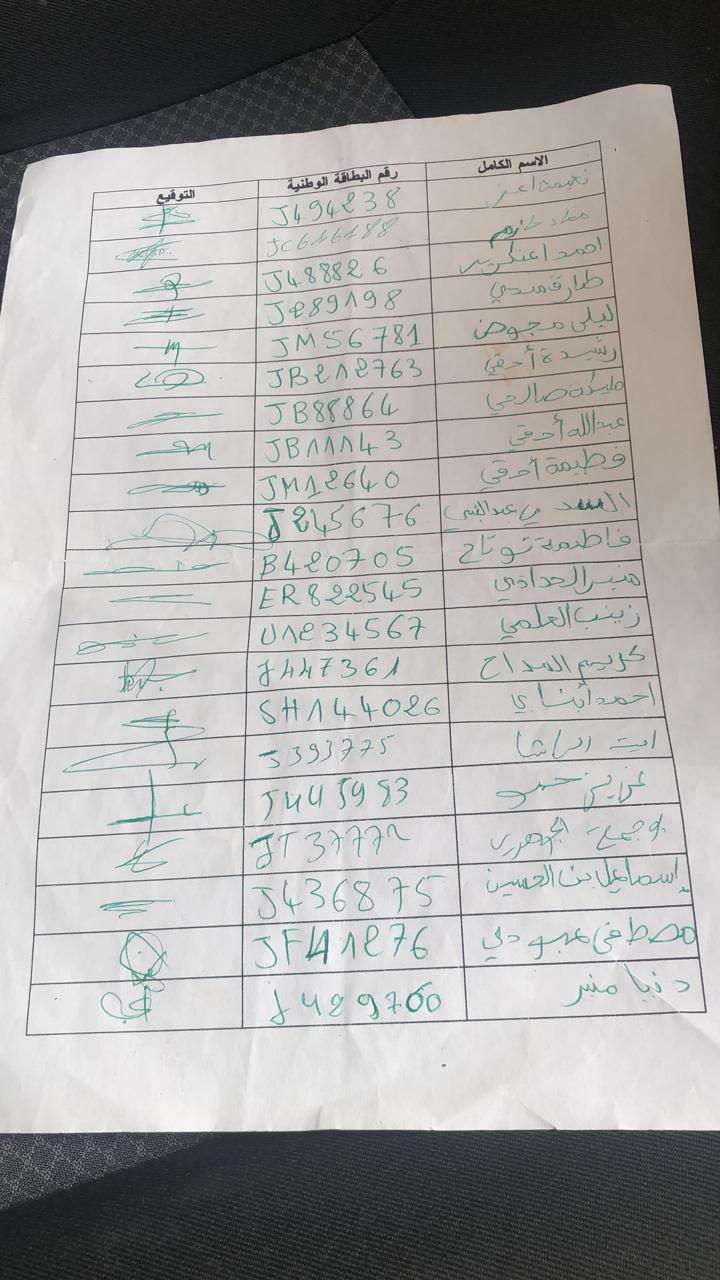 الاسم الكامل رقم البطاقة الوطنية التوقيع
نعيمة اعز J494238
عماد لازم JC616188
احمد اعنكرير J488826
طارق مسدي J289198
ليلى مجوض JM56781
رشيدة أحقي JB212763
مليكة صالحي JB88864
عبدالله أحقي JB11143
فطيمة أحقي JM12640
السيدي عبد النبي J245676
فاطمة توتاح B420705
منير الحدادي ER822545
زينب العلمي U1234567
كريم المداح J447361
احمد أبناي SH144026
ايت الراشا J393775
عزيز حمو J445983
بوجمع الجوهري JT37772
إسماعيل بن الحسين J436875
مصطفى عبودي JF41276
دنيا منير J489760